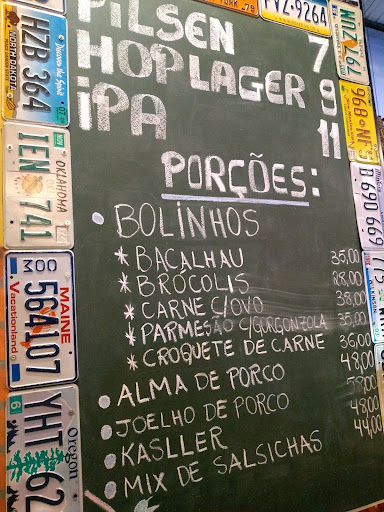 PILSEN 7
HOP LAGER 9
iPA 11
PORÇÕES:
BOLINHOS
* BACALHAU 35,00
* BRÓCOLIS 28,00
* CARNE C/OVO 38,00
* PARMESÃO C/GORGONZOLA 35,00
* CROQUETE DE CARNE 36,00
ALMA DE PORCO 48,00
JOELHO DE PORCO 58,00
KASLLER 48,00
MIX DE SALSICHAS 44,00
NORTH DAKOTA
HZB 364
Discover the Spirit
OKLAHOMA
IEN 741
MAINE
MOO 564107
Vacationland
Oregon
6
YHT 62
PVZ-9264
B 690 669